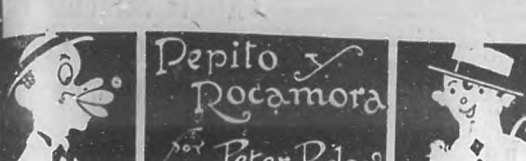 Pepito y
Rocamora
por Peter